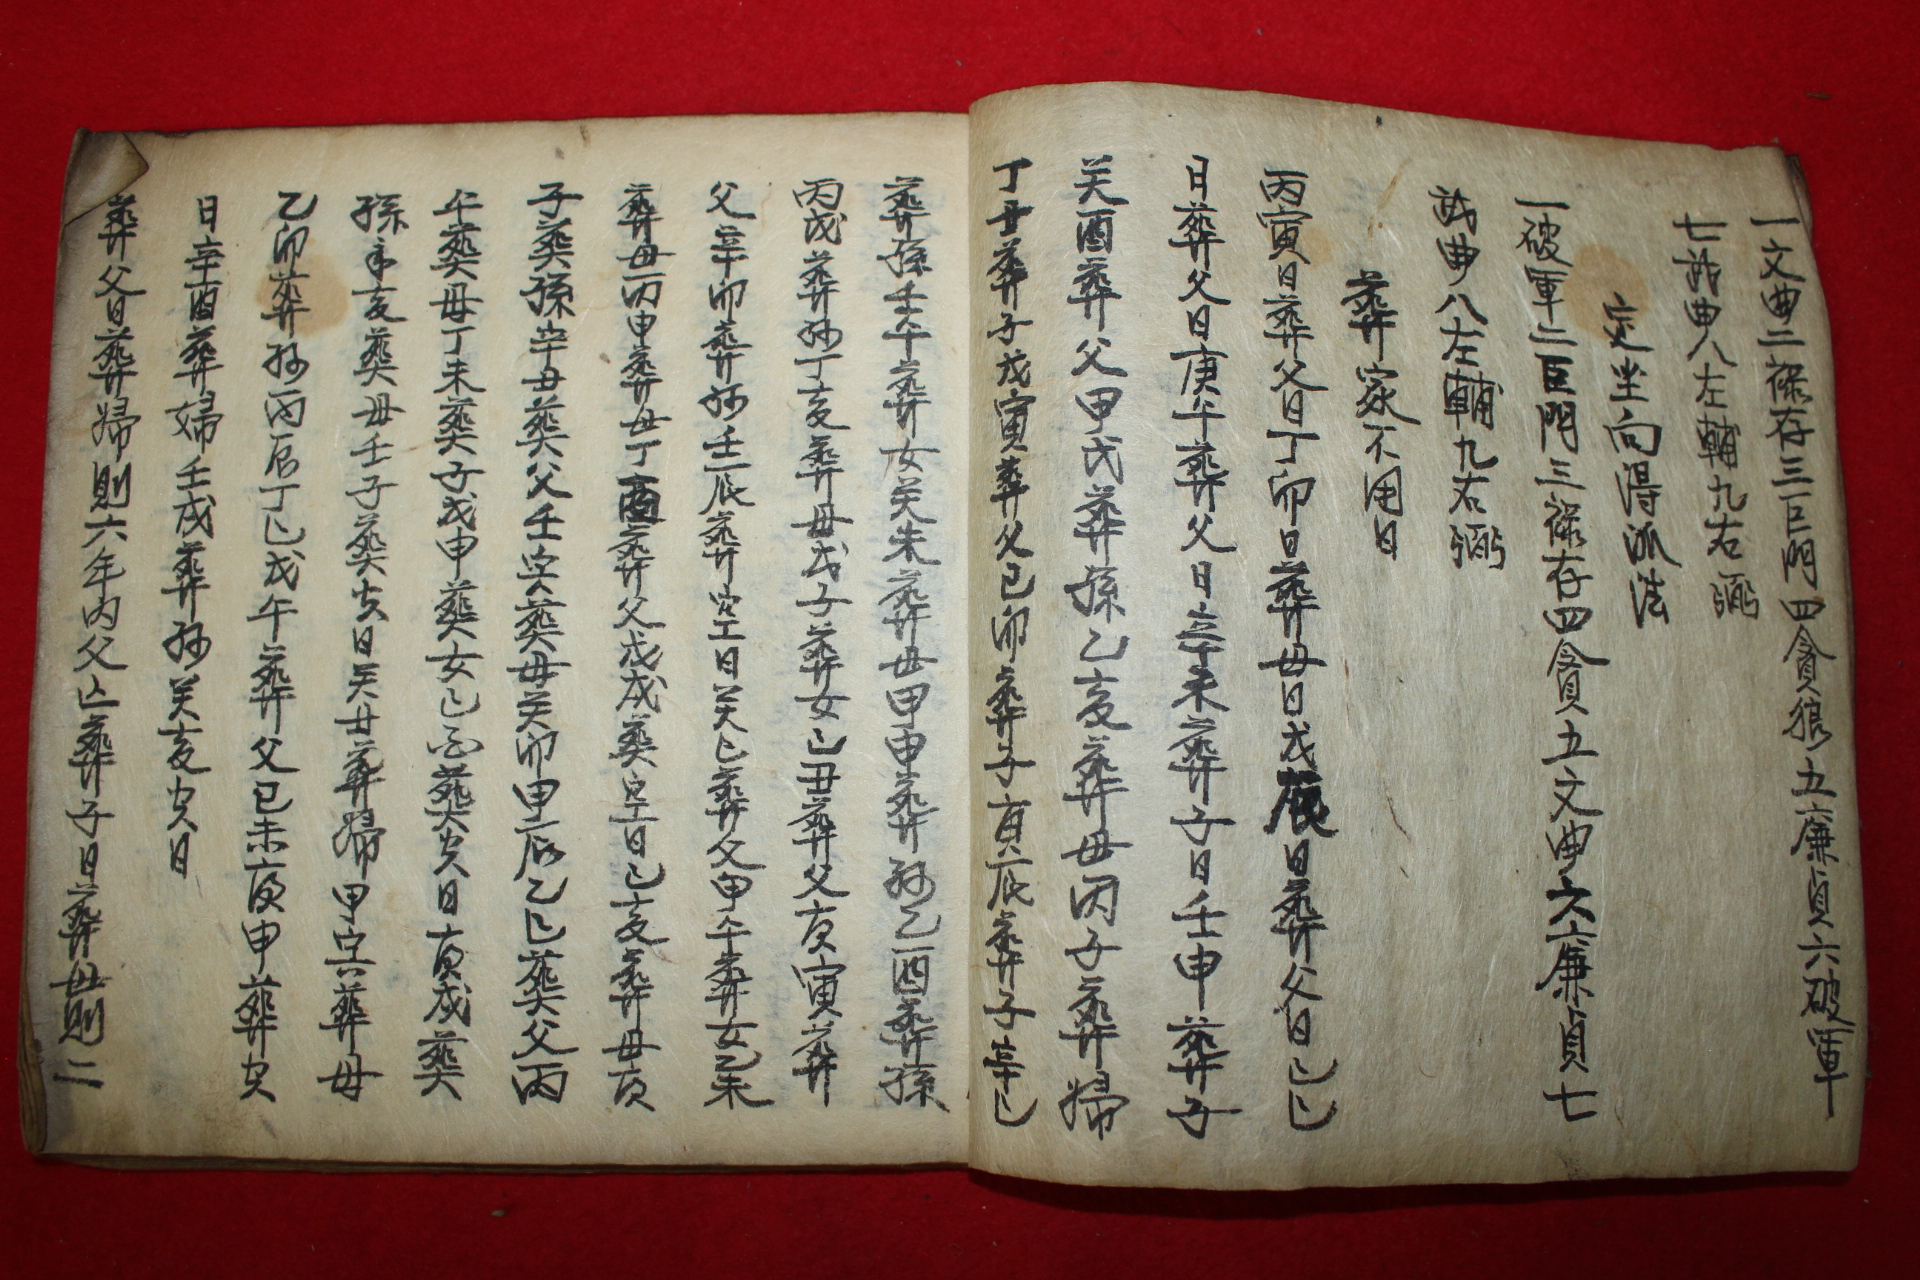 一文曲二祿存三巨門四貪狼五廉貞六破軍
七武曲八左輔九右弼
定坐向得派法
一破軍二巨門三祿存四貪五文曲六廉貞七
武曲八左輔九右弼
葬家不用日
丙寅日葬父日丁卯日葬母日戊辰日葬父日己巳
日葬父日庚午葬父日辛未葬子日壬申葬子
癸酉葬父甲戌葬孫乙亥葬母丙子葬婦
丁丑葬子戊寅葬父己卯葬子庚辰葬子辛巳
葬孫壬午葬女癸未葬母甲申葬孫乙酉葬孫
丙戌葬孫丁亥葬母戊子葬女己丑葬父庚寅葬
父辛卯葬孫壬辰葬空日癸巳葬父甲午葬女乙未
葬母丙申葬母丁酉葬父戊戌葬空日己亥葬母庚
子葬孫辛丑葬父壬寅葬母癸卯甲辰乙巳葬父丙
午葬母丁未葬子戊申葬女己酉葬日庚戌葬
孫辛亥葬母壬子葬日癸丑葬婦甲寅葬母
乙卯葬孫丙辰丁巳戊午葬父己未庚申葬
日辛酉葬婦壬戌葬孫癸亥日
葬父日葬婦則六年內父亡葬子日葬母則二